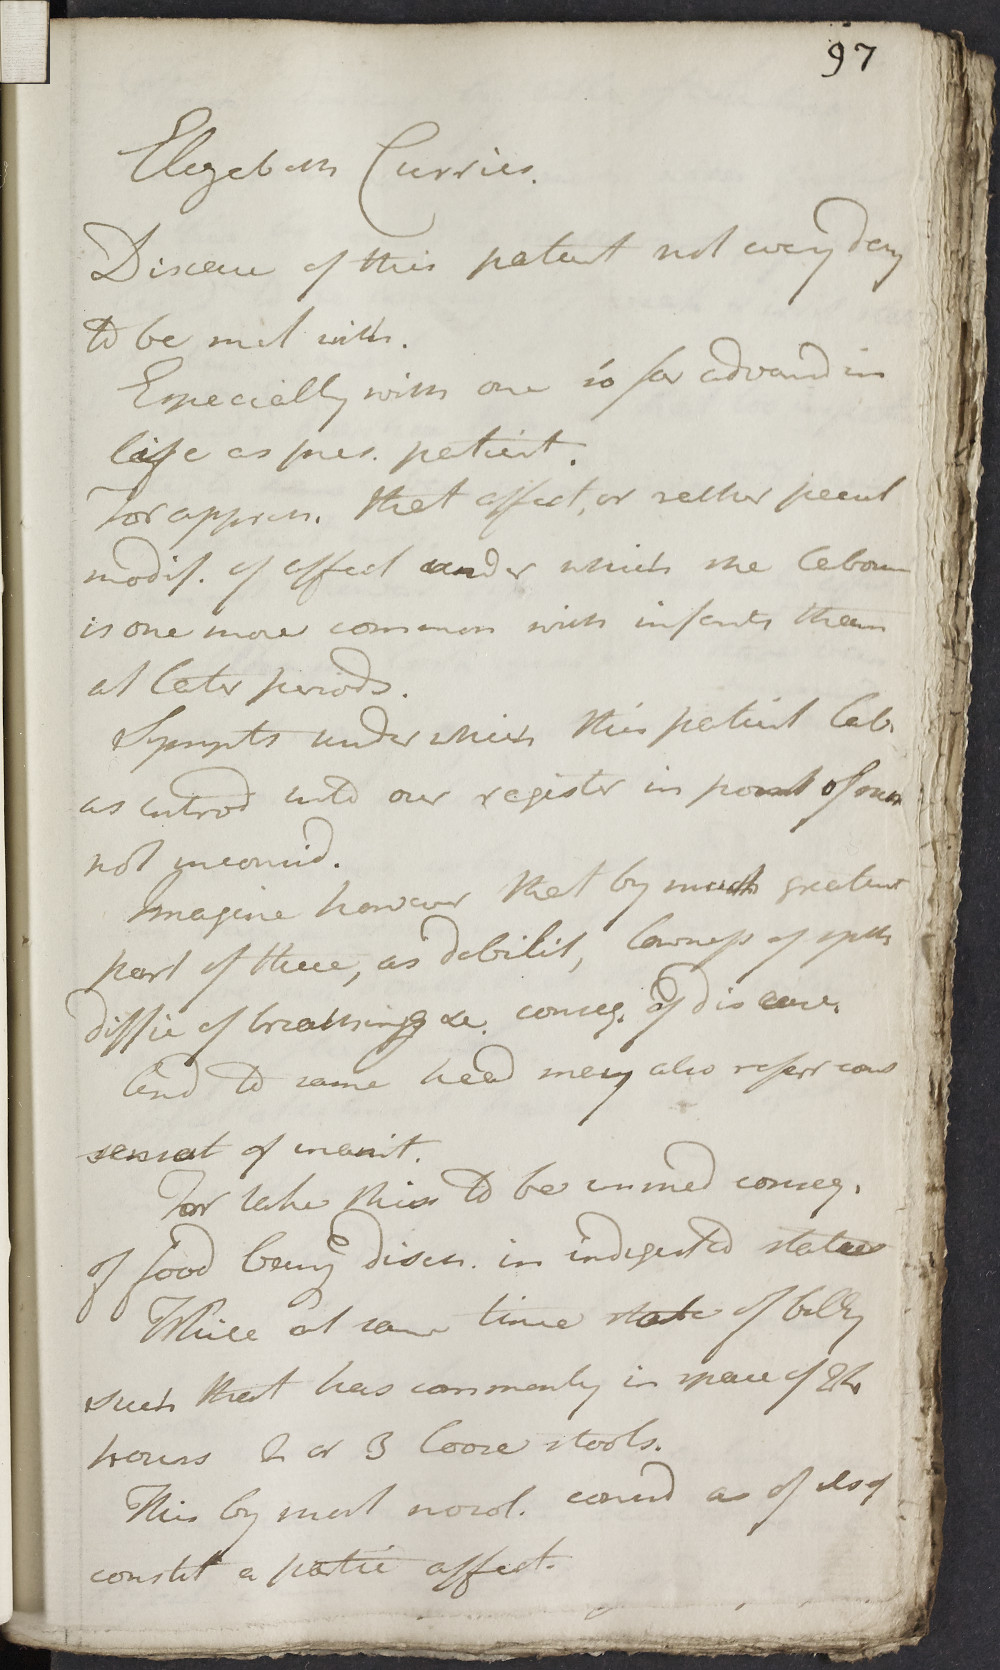 97
Elizabeth Curries.
Disease of this patient not every day
to be met with.
Especially with one so far advancd in
life as pres. patient.
For appreh. that affect, or rather pecul
modif. of affect under which she labour
is one more common with infants than
at later periods.
Sympts under which this patient lab.
as introd into our register in point of num
not inconsid.
Imagine however that by much greatest
part of these, as debilit, lowness of spts
diffic of breathing &c. conseq. of disease.
And to same head may also referr cons
sensat of inanit.
For take this to be immed conseq.
of food being disch. in indigested state
While at same time state of belly
such that has commonly in space of 24
hours 2 or 3 loose stools.
This by most nosol. consid as of itself
constit a partic affect.